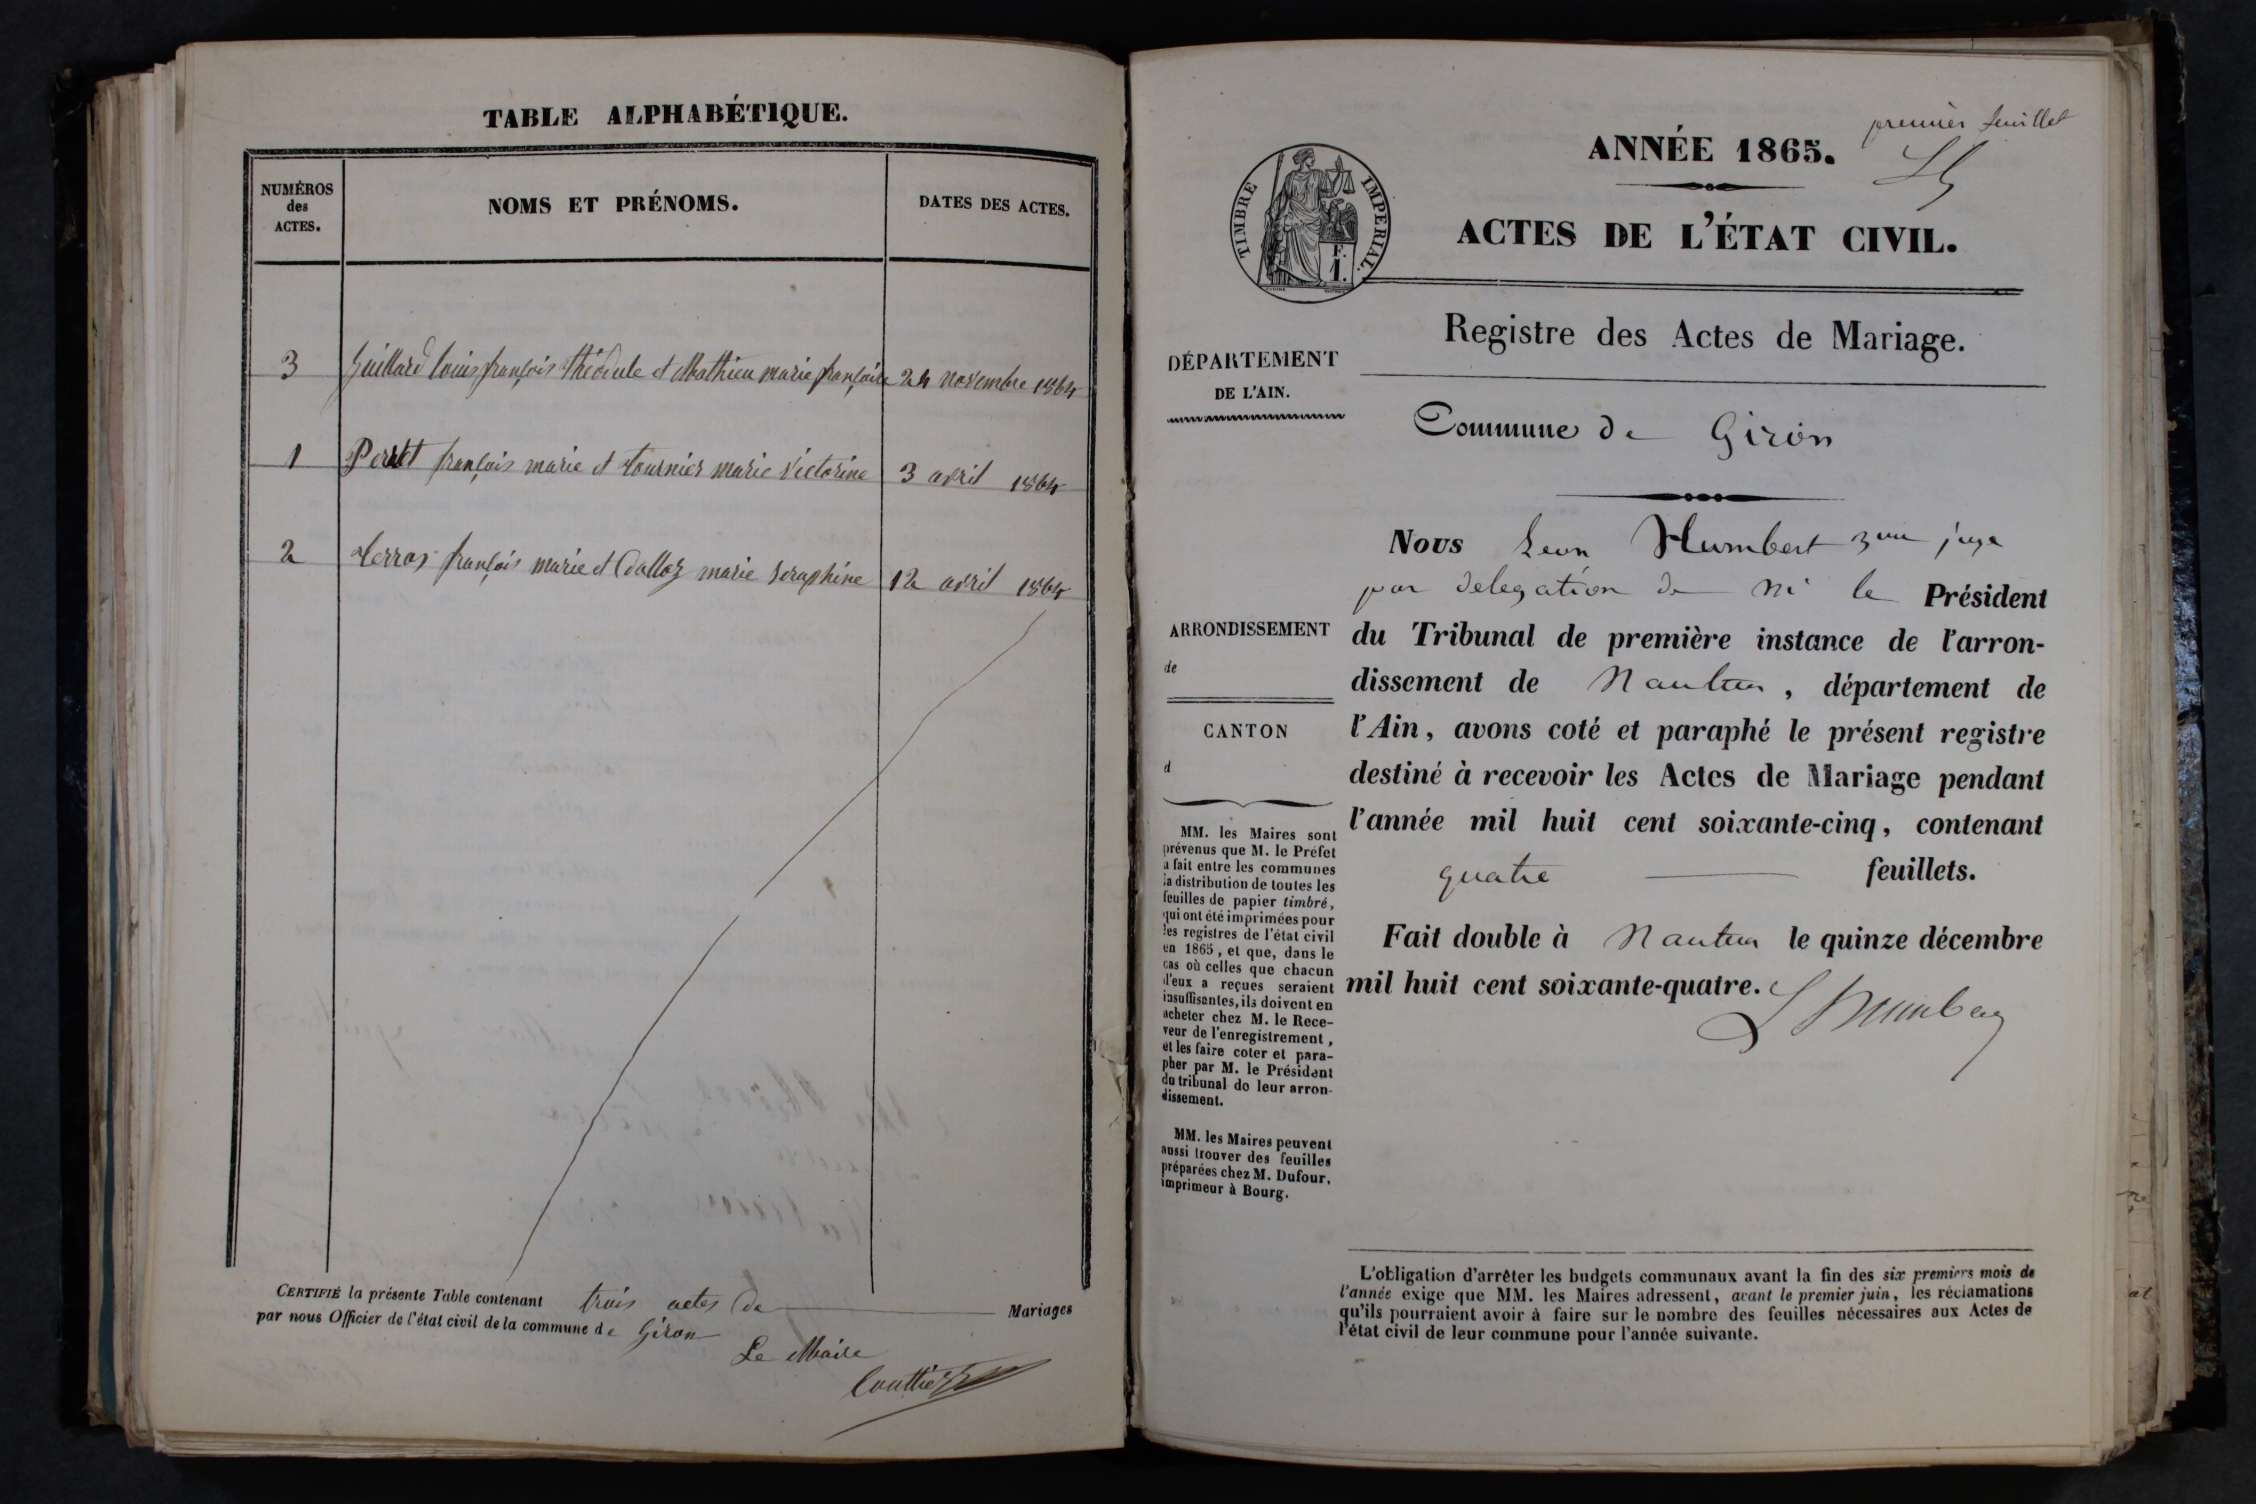 TABLE ALPHABÉTIQUE.
NUMÉROS
des
ACTES.
NOMS ET PRÉNOMS.
DATES DES ACTES.
3 Guillard louis françois théodule et Mathieu marie françoise 24 novembre 1864
1 Perret françois marie et tournier marie victorine 3 avril 1864
2 terroz françois marie et Dalloz marie séraphine 12 avril 1864
CERTIFIÉ la présente Table contenant trois actes de Mariages
par nous Officier de l'état civil de la commune de Giron
Le Maire
premier feuillet
ANNÉE 1865.
TIMBRE IMPERIAL.
F.
1.
ACTES DE L'ÉTAT CIVIL.
Registre des Actes de Mariage.
DÉPARTEMENT
DE L'AIN.
Commune de Giron
Nous Leon Humbert 3me juge
par delegation de Mr le Président
du Tribunal de première instance de l'arron-
dissement de Nantua, département de
l'Ain, avons coté et paraphé le présent registre
destiné à recevoir les Actes de Mariage pendant
l'année mil huit cent soixante-cinq, contenant
quatre feuillets.
Fait double à Nantua le quinze décembre
mil huit cent soixante-quatre.
L Humbert
ARRONDISSEMENT
de
CANTON
d
MM. les Maires sont
prévenus que M. le Préfet
a fait entre les communes
la distribution de toutes les
feuilles de papier timbré,
qui ont été imprimées pour
les registres de l'état civil
en 1865, et que, dans le
cas où celles que chacun
d'eux a reçues seraient
insuffisantes, ils doivent en
acheter chez M. le Rece-
veur de l'enregistrement,
et les faire coter et para-
pher par M. le Président
du tribunal de leur arron-
dissement.
MM. les Maires peuvent
aussi trouver des feuilles
préparées chez M. Dufour,
imprimeur à Bourg.
L'obligation d'arrêter les budgets communaux avant la fin des six premiers mois de
l'année exige que MM. les Maires adressent, avant le premier juin, les réclamations
qu'ils pourraient avoir à faire sur le nombre des feuilles nécessaires aux Actes de
l'état civil de leur commune pour l'année suivante.